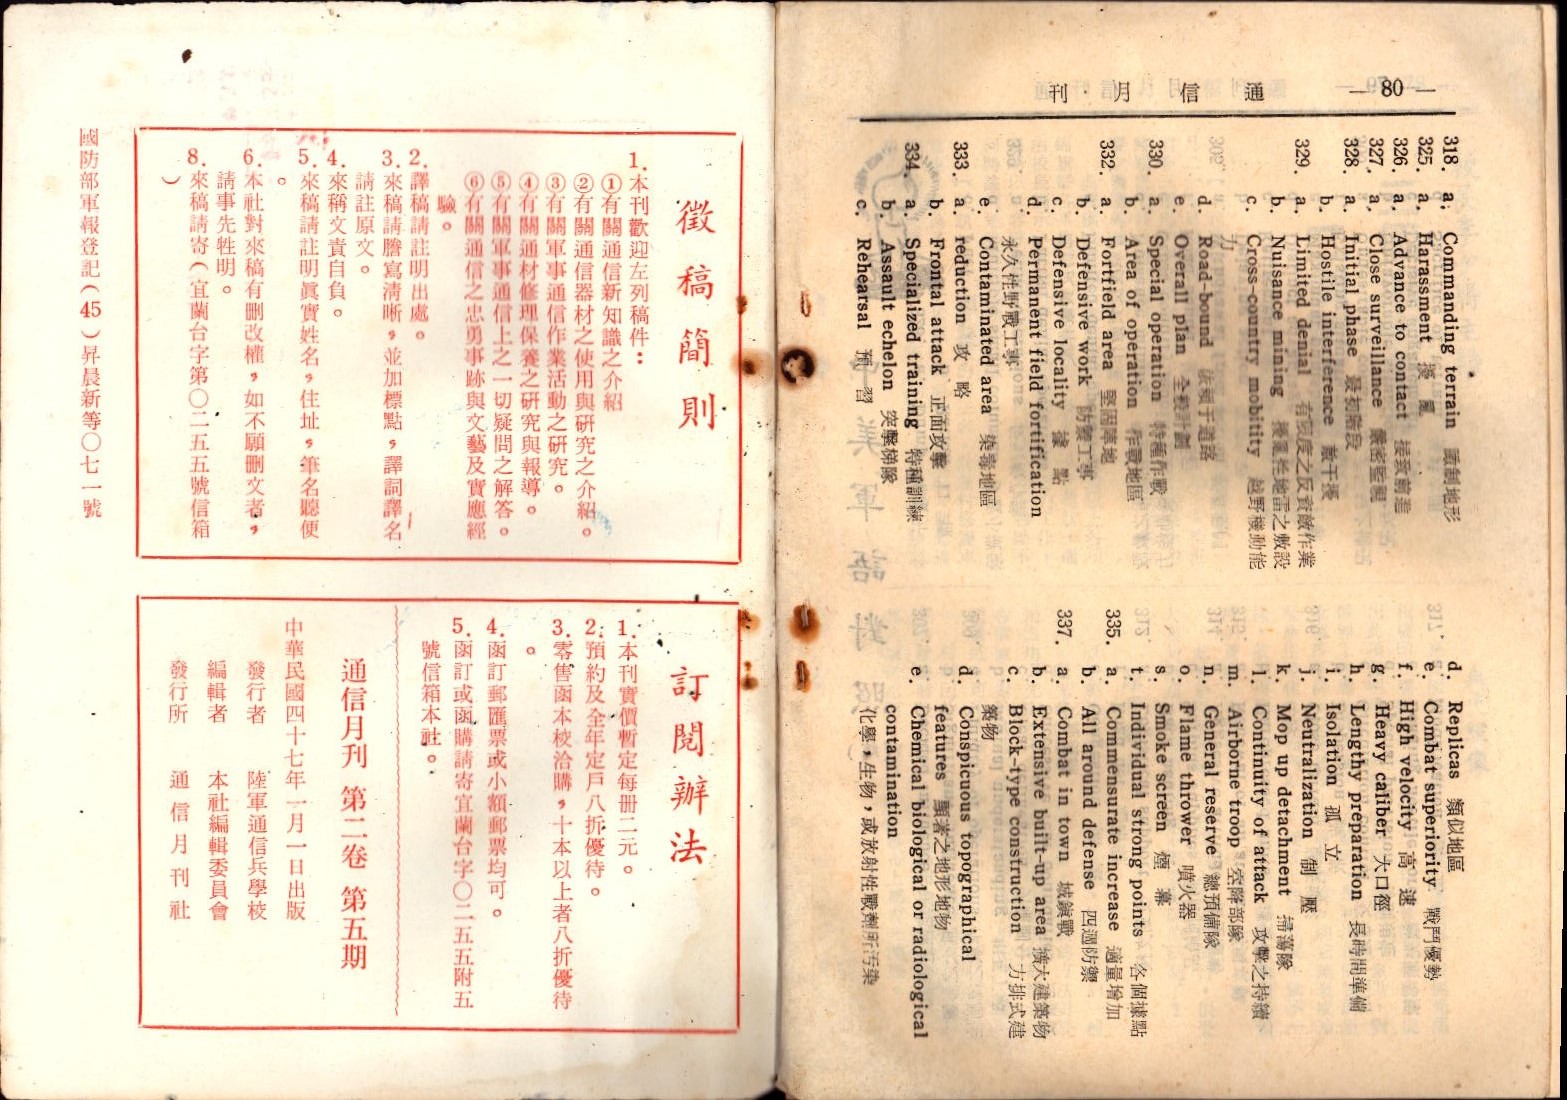 — 80 —
通信月刊
318. a. Commanding terrain 瞰制地形
325. a. Harassment 擾亂
326. a. Advance to contact 接敵前進
327. a. Close surveillance 嚴密監視
328. a. Initial phase 最初階段
b. Hostile interference 敵干擾
329. a. Limited denial 有限度之反資敵作業
b. Nuisance mining 擾亂性地雷之敷設
c. Cross-country mobitity 越野機動能
力
d. Road-bound 依賴于道路
e. Overall plan 全般計劃
330. a. Special operation 特種作戰
b. Area of operation 作戰地區
332. a. Fortfield area 堅固陣地
b. Defensive work 防禦工事
c. Defensive locality 據點
d. Permanent field fortification
永久性野戰工事
e. Contaminated area 染毒地區
333. a. reduction 攻略
b. Frontal attack 正面攻擊
334. a. Specialized training 特種訓練
b. Assault echelon 突擊梯隊
c. Rehearsal 預習
d. Replicas 類似地區
e. Combat superiority 戰鬥優勢
f. High velocity 高速
g. Heavy caliber 大口徑
h. Lengthy preparation 長時間準備
i. Isolation 孤立
j. Neutralization 制壓
k. Mop up detachment 掃蕩隊
l. Continuity of attack 攻擊之持續
m. Airborne troop 空降部隊
n. General reserve 總預備隊
o. Flame thrower 噴火器
s. Smoke screen 煙幕
t. Individual strong points 各個據點
335. a. Commensurate increase 適量增加
b. All around defense 四週防禦
337. a. Combat in town 城鎮戰
b. Extensive built-up area 擴大建築物
c. Block-type construction 方排式建
築物
d. Conspicuous topographical
features 顯著之地形地物
e. Chemical biological or radiological
contamination
化學，生物，或放射性戰劑所污染
徵稿簡則
1.本刊歡迎左列稿件：
①有關通信新知識之介紹
②有關通信器材之使用與研究之介紹。
③有關軍事通信作業活動之研究。
④有關通材修理保養之研究與報導。
⑤有關軍事通信上之一切疑問之解答。
⑥有關通信之忠勇事跡與文藝及實應經
驗。
2.譯稿請註明出處。
3.來稿請謄寫清晰，並加標點，譯詞譯名
請註原文。
4.來稱文責自負。
5.來稿請註明眞實姓名，住址，筆名聽便
。
6.本社對來稿有刪改權，如不願刪文者，
請事先牲明。
8.來稿請寄（宜蘭台字第〇二五五號信箱
）
訂閱辦法
1.本刊實價暫定每冊二元。
2.預約及全年定戶八折優待。
3.零售函本校洽購，十本以上者八折優待
。
4.函訂郵匯票或小額郵票均可。
5.函訂或函購請寄宜蘭台字〇二五五附五
號信箱本社。
通信月刊 第二卷 第五期
中華民國四十七年一月一日出版
發行者 陸軍通信兵學校
編輯者 本社編輯委員會
發行所 通信月刊社
國防部軍報登記（45）昇晨新等〇七一號